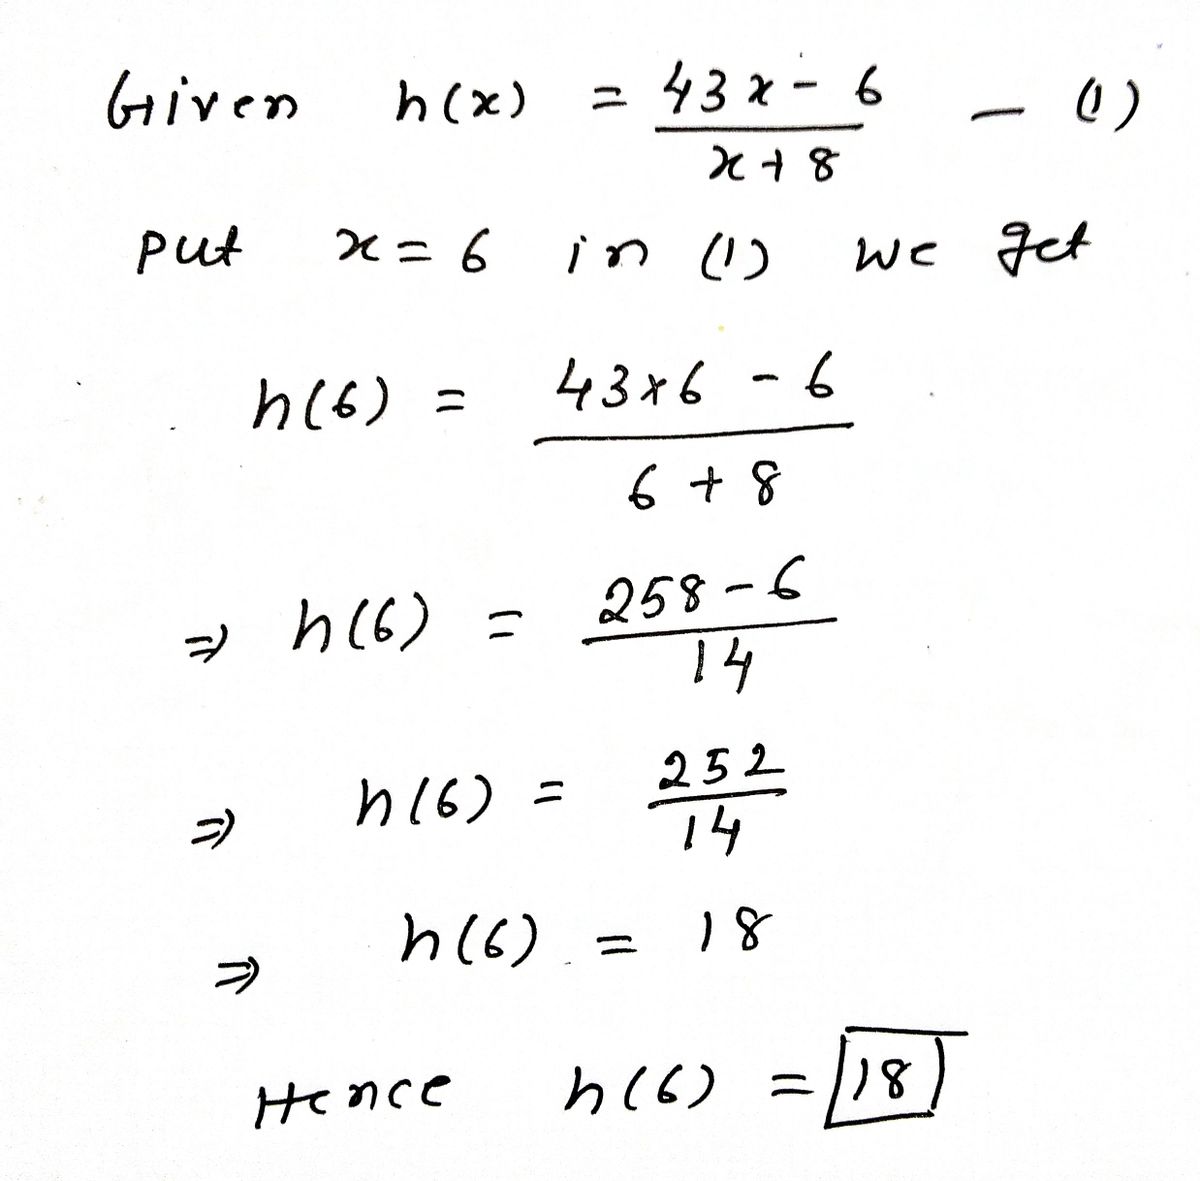 Given h(x) = (43x - 6)/(x + 8) — (1)
put x = 6 in (1) we get
h(6) = (43×6 - 6)/(6 + 8)
⇒ h(6) = (258 - 6)/14
⇒ h(6) = 252/14
⇒ h(6) = 18
Hence h(6) = 18